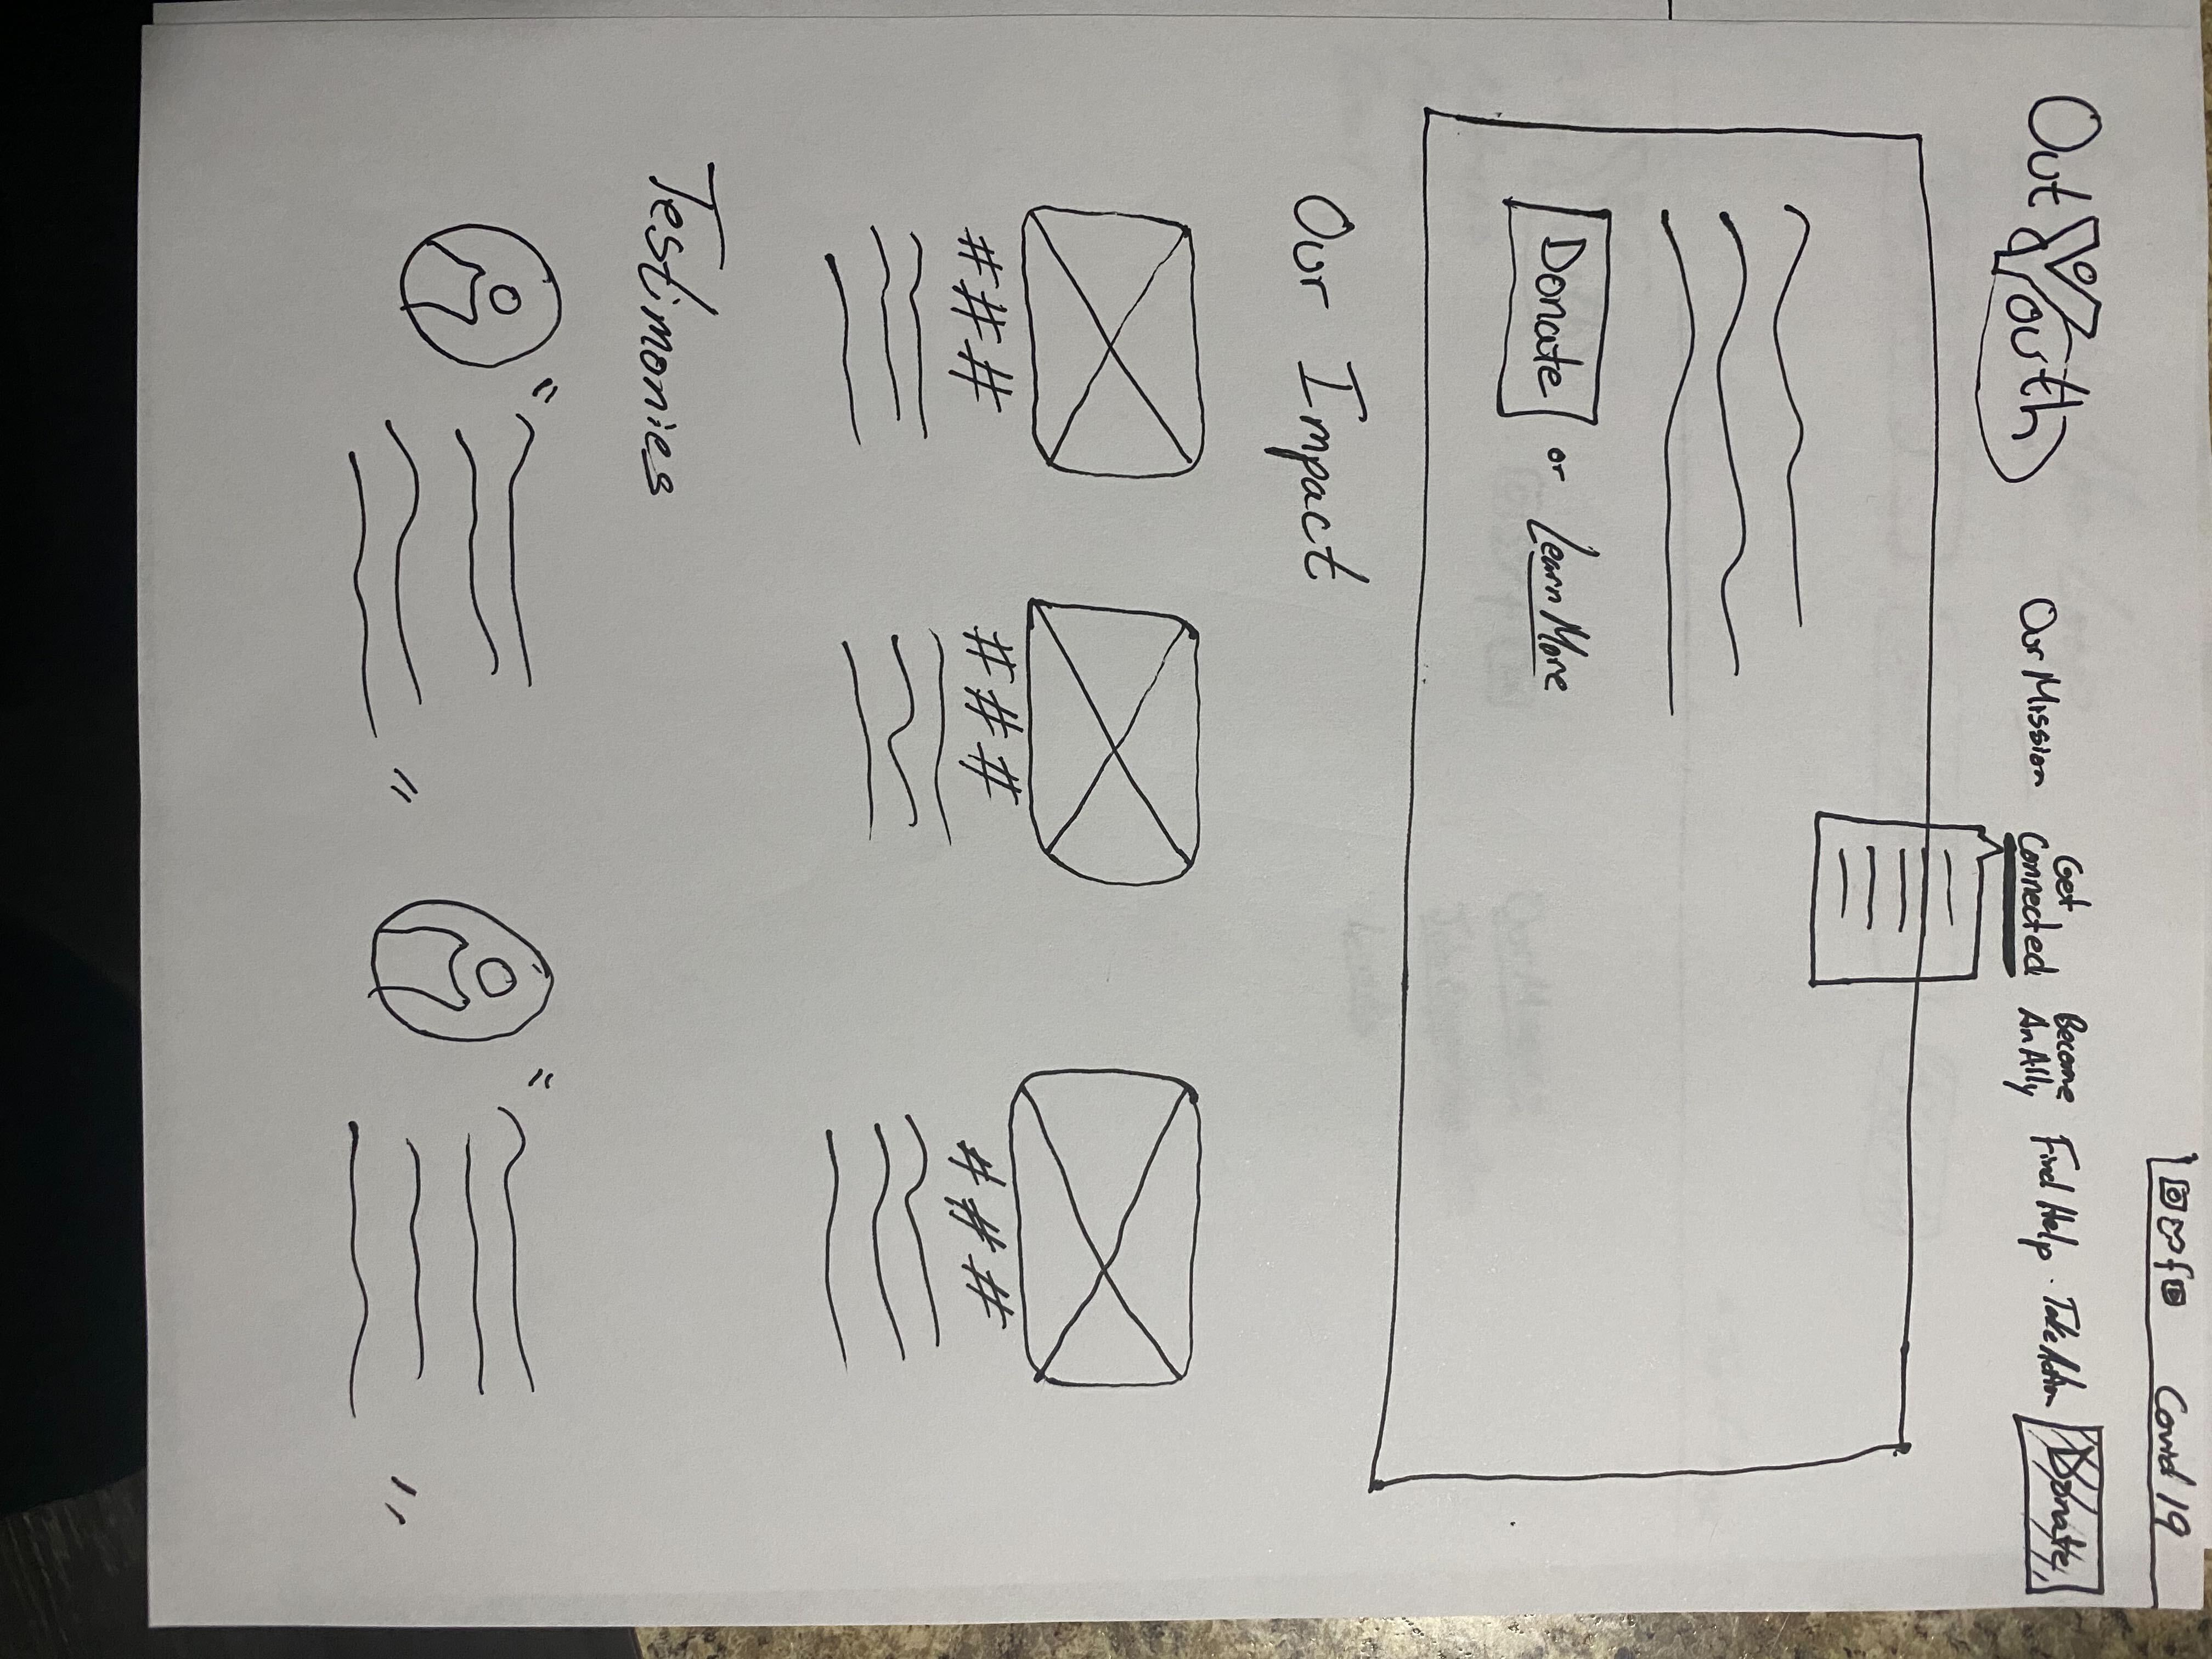 Covid 19
Out Youth
Our Mission
Get Connected
Become An Ally
Find Help
Take Action
Donate
Donate or Learn More
Our Impact
### ### ###
Testimonies
" " " "